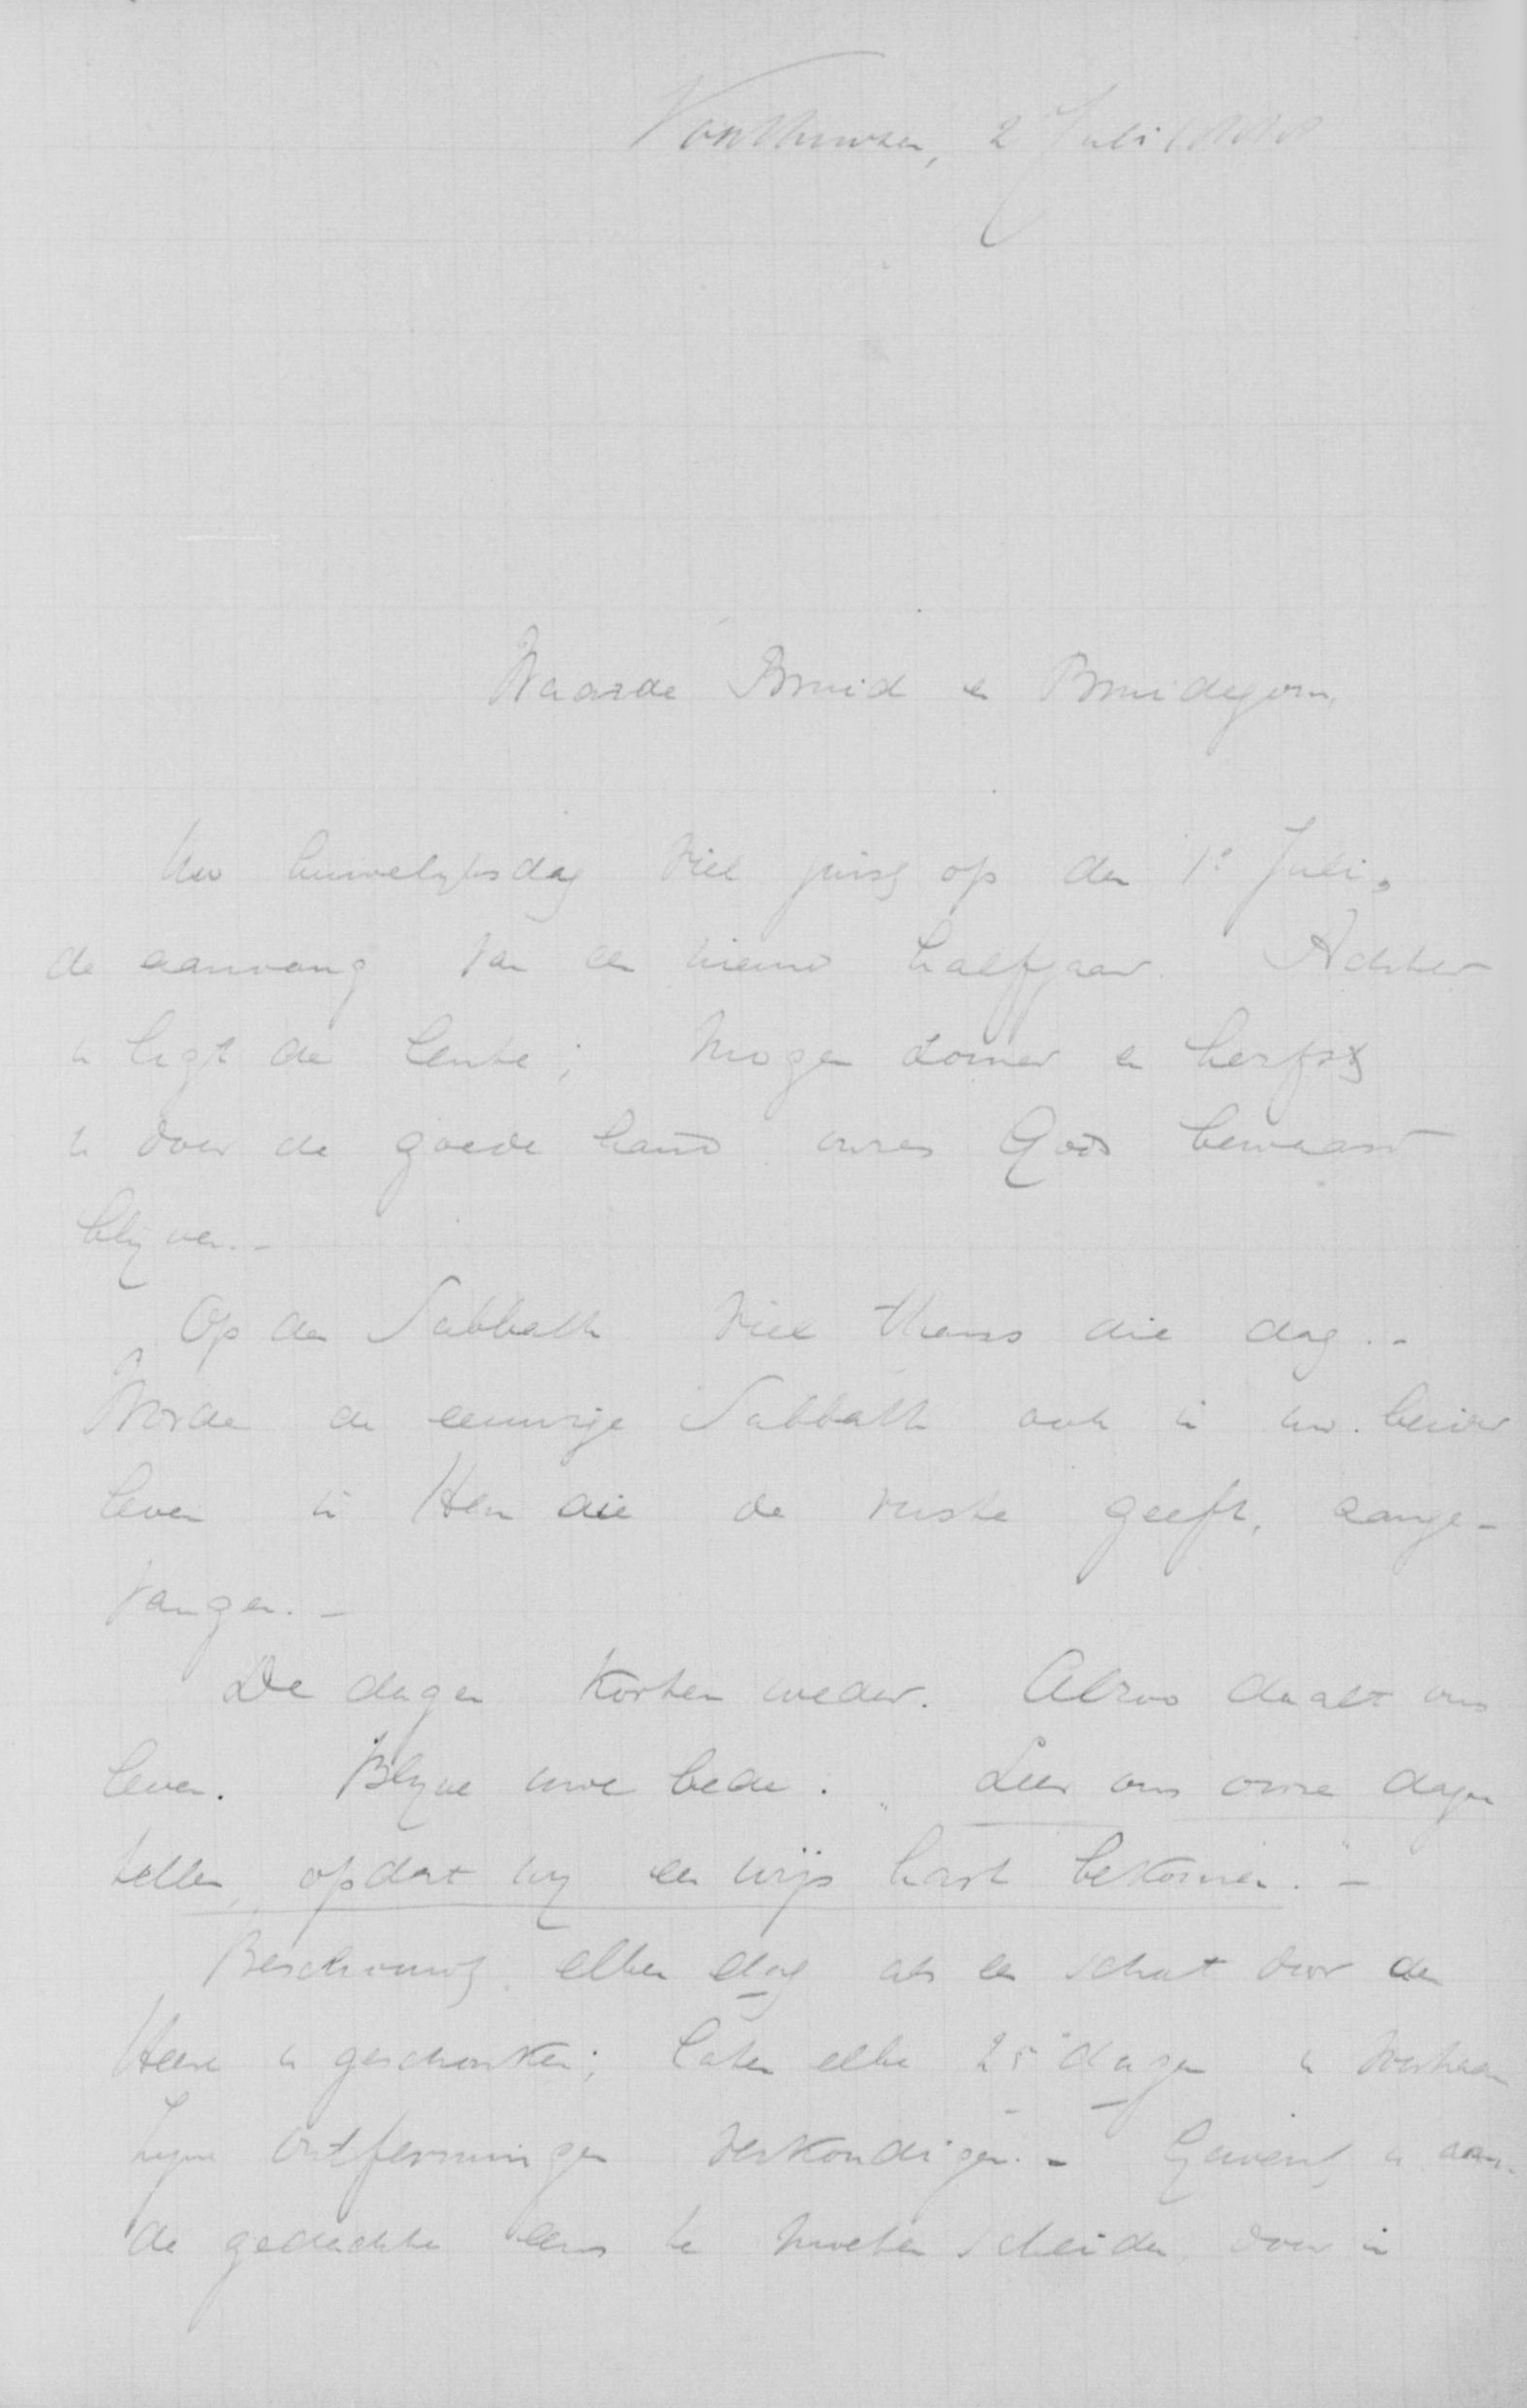 Voorthuizen, 2 Juli
Waarde Bruid en Bruidegom,
Uw huwelyksdag viel juist op den 1e Juli,
de aanvang van een nieuw halfjaar. Achter
u ligt de lente; mogen zomer en herfst
u door de goede hand onzes Gods bewaard
blijven. -
Op den Sabbath viel thans die dag. -
Worde de eeuwige Sabbath ook in uw beider
leven in Hem die de ruste geeft, aange-
vangen. -
De dagen korten weder. Alzoo daalt ons
leven. Blyve uwe bede: "Leer ons onze dagen
tellen, opdat wy een wijs hart bekomen." -
Beschouwt elken dag als een schat door den
Heere u geschonken; laten elke 25 dagen u
zyne ontfermingen verkondigen. - Gewent u aan
de gedachte eens te moeten scheiden door in